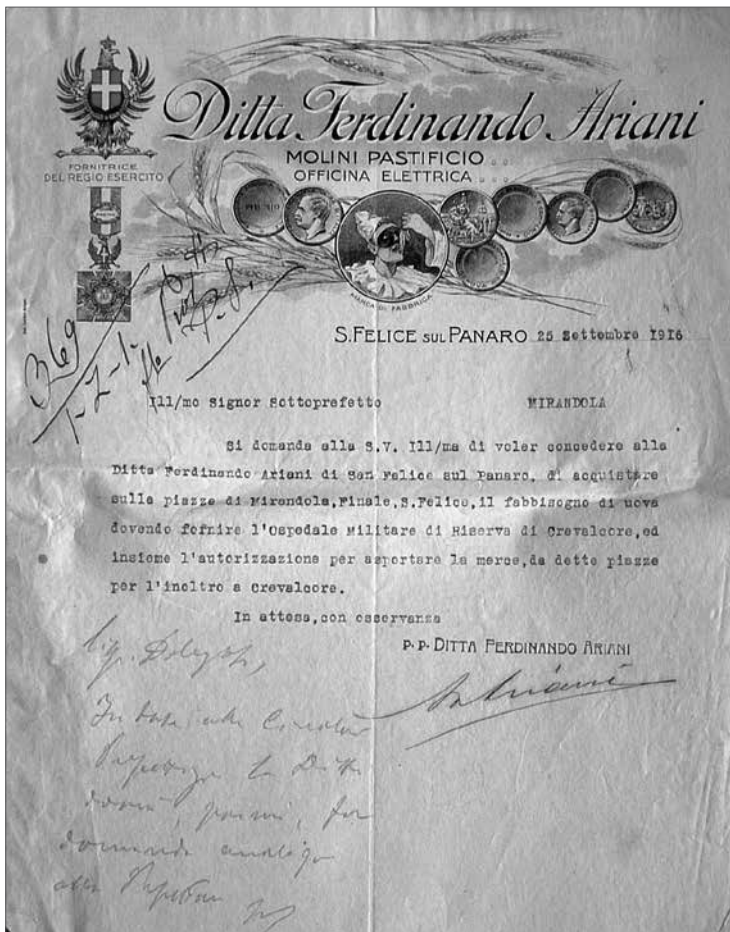 Ditta Ferdinando Ariani
MOLINI PASTIFICIO
OFFICINA ELETTRICA
FORNITRICE
DEL REGIO ESERCITO
MARCA DI FABBRICA
369
1-2-1-
S. FELICE SUL PANARO 25 Settembre 1916
Ill/mo Signor Sottoprefetto MIRANDOLA
Si domanda alla S.V. Ill/ma di voler concedere alla
Ditta Ferdinando Ariani di San Felice sul Panaro, di acquistare
sulle piazze di Mirandola,Finale,S.Felice,il fabbisogno di uova
dovendo fornire l'Ospedale Militare di Riserva di Crevalcore,ed
insieme l'autorizzazione per asportare la merce,da dette piazze
per l'inoltro a Crevalcore.
In attesa,con osservanza
P. P. DITTA FERDINANDO ARIANI
Ariani
In base alla
la Ditta
domanda analoga